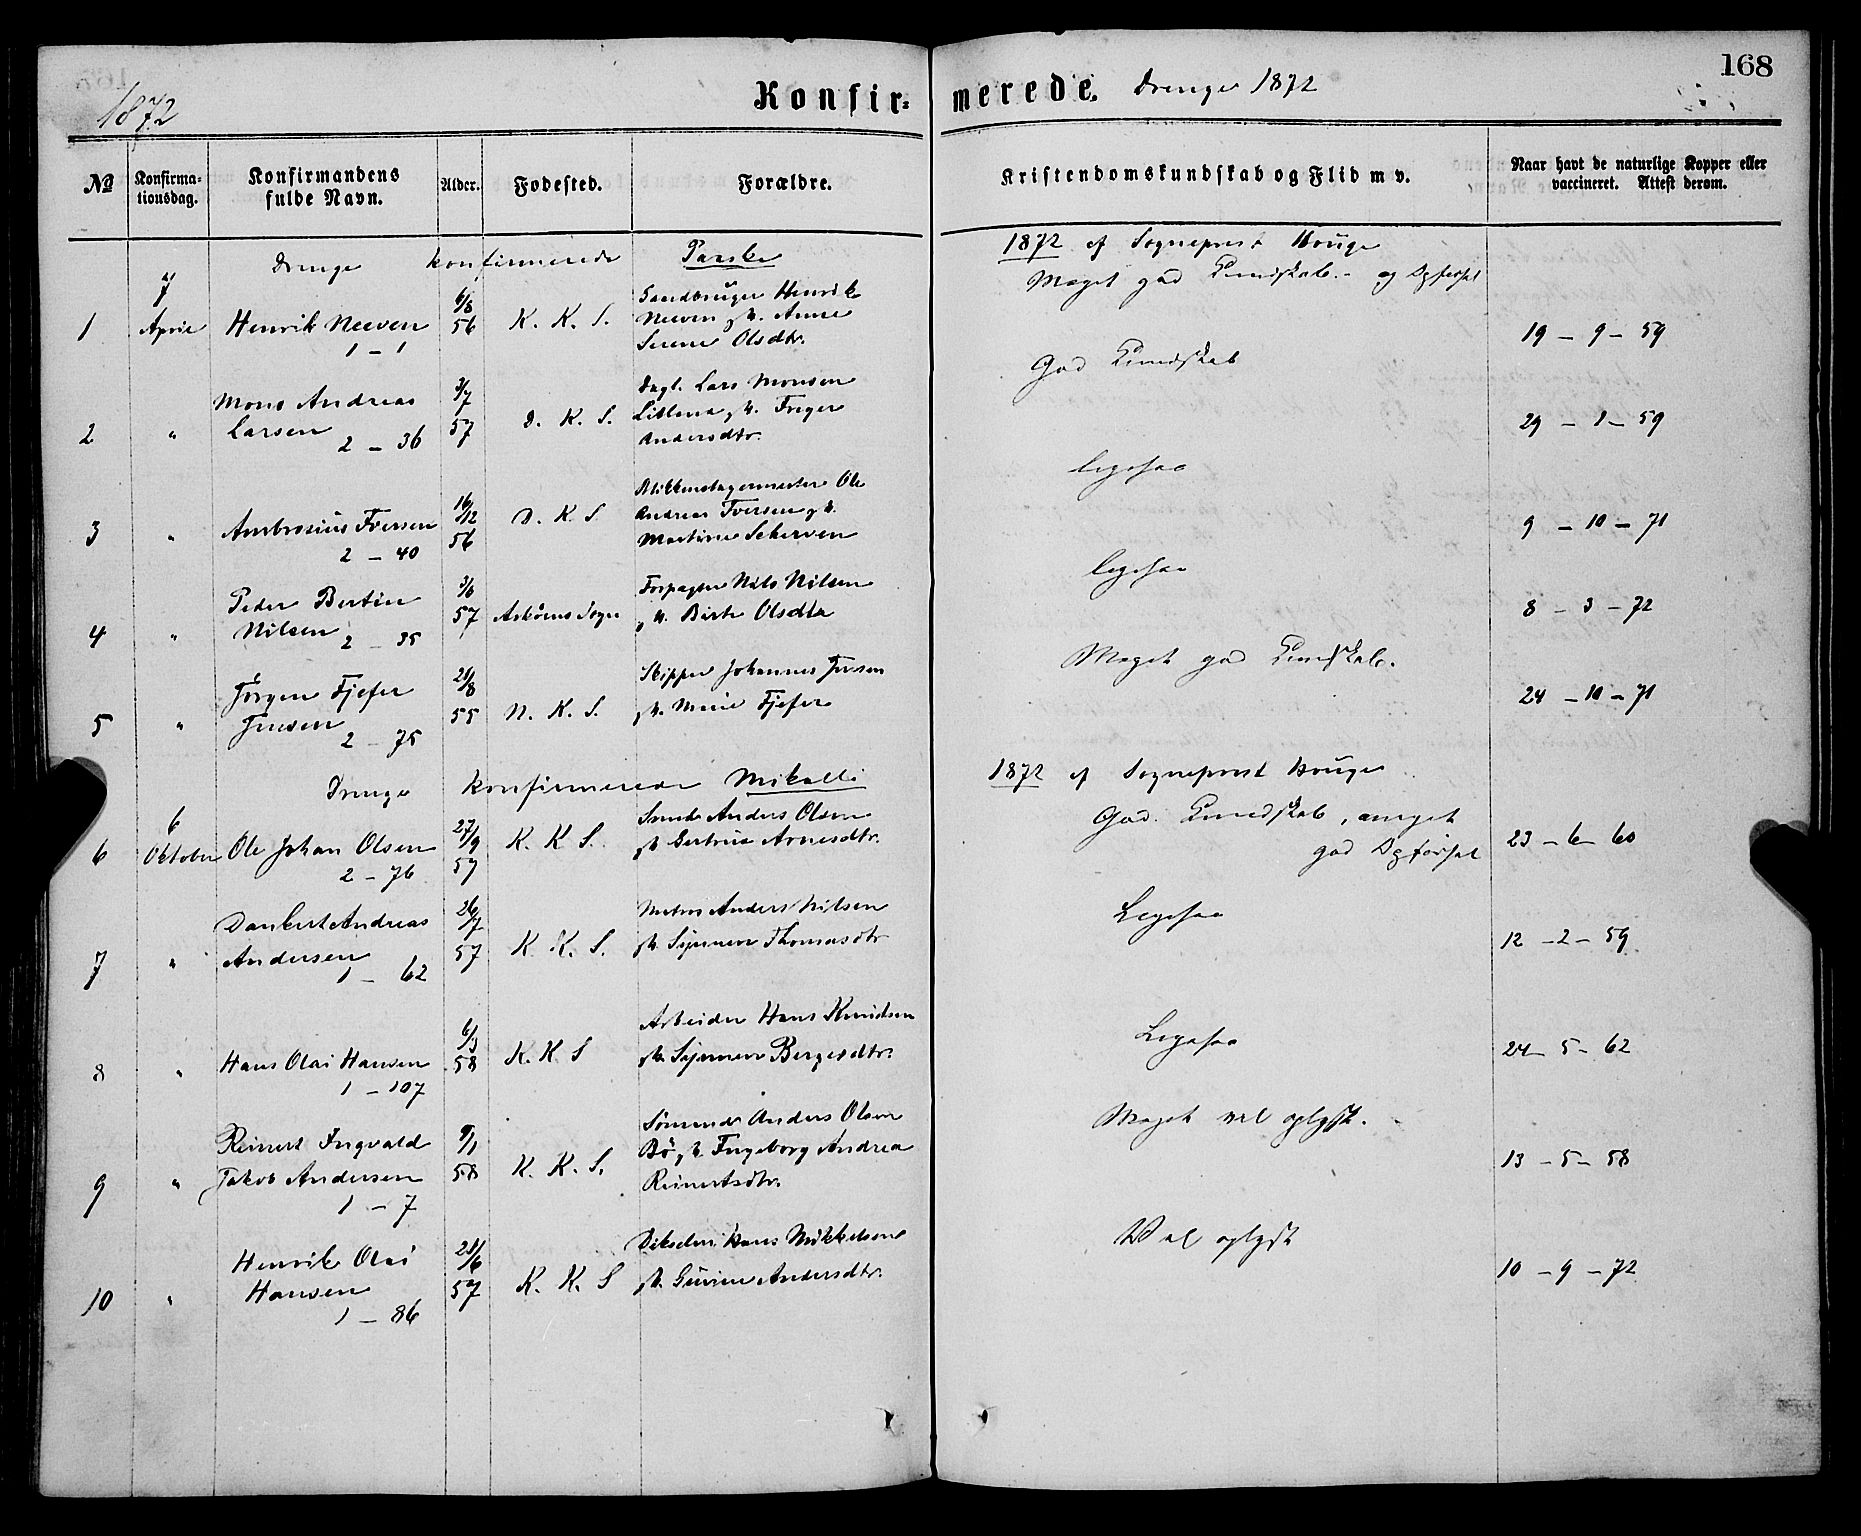 168
1872
Konfir=
merede. Drenge 1872
No
Konfirma-
tionsdag.
Konfirmandens
fulde Navn.
Alder.
Fødested.
Forældre.
Kristendomskundskab og Flid m v.
Naar havt de naturlige Kopper eller
vaccineret. Attest derom.
Drenge konfirmerede Paaske 1872 af Sogneprest Houge
7
April
1
Henrik Neeven
1 - 1
6/8
56
K. K. S.
Henrik
Neeven g h. Anne
Serene Olsdtr.
Meget god Kundskab. og Opførsel
19 - 9 - 59
2
"
Mons Andreas
Larsen
2 - 36
3/7
57
D. K. S.
Dagl. Lars Monsen
g h. Inger
Andersdtr.
God Kundskab
29 - 1 - 59
3
"
Ambrosius Iversen
2 - 40
16/12
56
D. K. S
Blikkenslagermester Ole
Andreas Iversen g h.
Martine Scherven
ligesaa
9 - 10 - 71
4
"
Peder Bertin
Nilsen
2 - 35
3/6
57
Askøens Sogn
Forpagter Nils Nilsen
g h. Birte Olsdtr
ligesaa
8 - 3 - 72
5
"
Jørgen Fjefer
Jensen
2 - 75
21/8
55
N. K. S.
Skipper Johannes Jensen
g h. Marie Fjefer
Meget god Kundskab.
24 - 10 - 71
Drenge konfirmerede Mikalli 1872 af Sogneprest Houge
6
Oktober
6
Ole Johan Olsen
2 - 76
27/9
57
K. K S.
Anders Olsen
g h Gertrud Arnesdtr.
God Kundskab, meget
god Opførsel
23 - 6 - 60
7
"
Dankert Andreas
Andersen
1 - 62
26/7
57
K. K. S.
Matros Anders Nilsen
g h. Synneve Thomasdtr
Ligesaa
12 - 2 - 59
8
"
Hans Olai Hansen
1 - 107
6/3
58
K. K S
Arbeider Hans Knudsen
g h. Synneve Bergesdtr.
Ligesaa
24 - 5 - 62
9
"
Reinert Ingvald
Jakob Andersen
1 - 7
9/1
58
K. K. S.
Sømand Anders Olsen
Bø g h. Ingeborg Andrea
Reinertsdtr.
Meget vel oplyst.
13 - 5 - 58
10
"
Henrik Olai
Hansen
1 - 86
21/6
57
K. K. S
Hans Mikkelsen
g h. Andersdtr.
Vel oplyst
10 - 9 - 72